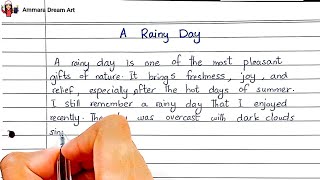 Ammara Dream Art
A Rainy Day
A rainy day is one of the most pleasant
gifts of nature. It brings freshness, joy, and
relief, especially after the hot days of summer.
I still remember a rainy day that I enjoyed
recently. The was overcast with dark clouds
sin